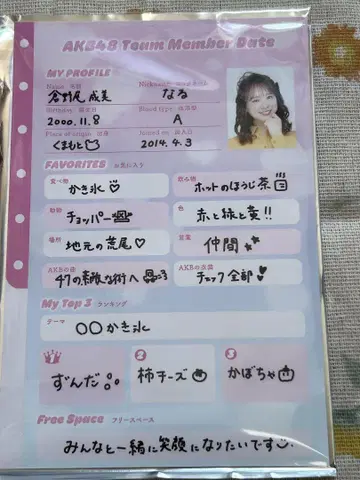 AKB48 Team Member Date
MY PROFILE
Name 名前
Nickname ニックネーム
倉野尾 成美
なる
Birthday 誕生日
Blood type 血液型
2000.11.8
A
Place of origin 出身
くまもと
2014.4.3
FAVORITES お気に入り
食べ物
かき氷♡
飲み物
ホットのほうじ茶
動物
チョッパー
色
赤と緑と黄!!
場所
地元の荒尾♡
言葉
仲間
AKBの曲
47の素敵な街へ
AKBの衣装
チェック全部
My Top 3 ランキング
テーマ
〇〇かき氷
1
ずんだ
2
柿チーズ
3
かぼちゃ
Free Space フリースペース
みんなと一緒に笑顔になりたいです